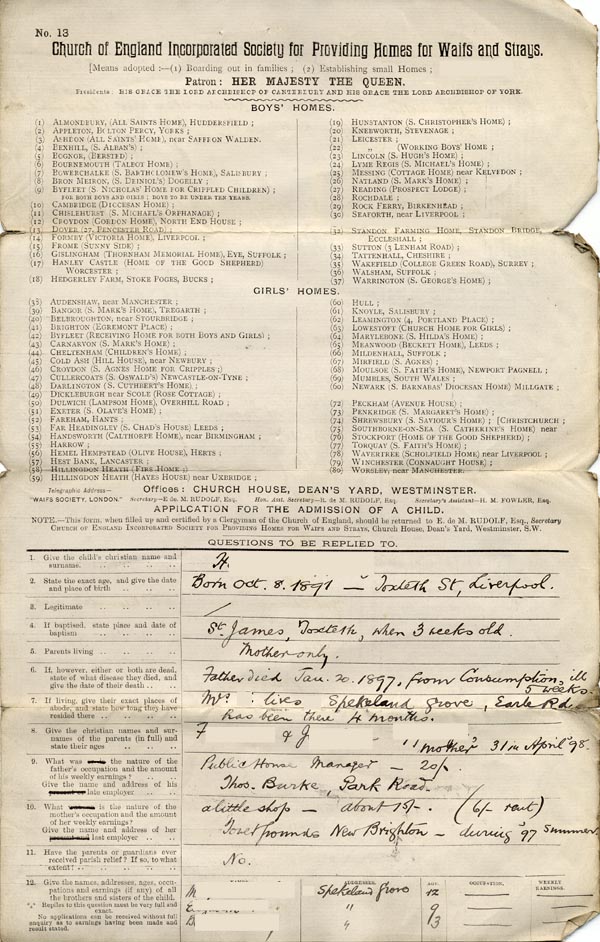 No. 13
Church of England Incorporated Society for Providing Homes for Waifs and Strays.
[Means adopted :—(1) Boarding out in families ; (2) Establishing small Homes ;
Patron : HER MAJESTY THE QUEEN.
Presidents : HIS GRACE THE LORD ARCHBISHOP OF CANTERBURY AND HIS GRACE THE LORD ARCHBISHOP OF YORK.
BOYS' HOMES.
(1) ALMONDBURY, (ALL SAINTS HOME), HUDDERSFIELD ;
(2) APPLETON, BOLTON PERCY, YORKS ;
(3) ASHDON (ALL SAINTS' HOME), near SAFFRON WALDEN.
(4) BEXHILL, (S. ALBAN'S) ;
(5) BOGNOR, (BERSTED) ;
(6) BOURNEMOUTH (TALBOT HOME) ;
(7) BOWERCHALKE (S. BARTHOLOMEW'S HOME), SALISBURY ;
(8) BRON MEIRON, (S. DEINIOL'S) DOGELLY ;
(9) BYFLEET (S. NICHOLAS' HOME FOR CRIPPLED CHILDREN) ;
FOR BOTH BOYS AND GIRLS ; BOYS TO BE UNDER TEN YEARS.
(10) CAMBRIDGE (DIOCESAN HOME) ;
(11) CHISLEHURST (S. MICHAEL'S ORPHANAGE) ;
(12) CROYDON (GORDON HOME), NORTH END HOUSE ;
(13) DOVER (27, PENCESTER ROAD) ;
(14) FORMBY (VICTORIA HOME), LIVERPOOL ;
(15) FROME (SUNNY SIDE) ;
(16) GISLINGHAM (THORNHAM MEMORIAL HOME), EYE, SUFFOLK ;
(17) HANLEY CASTLE (HOME OF THE GOOD SHEPHERD)
WORCESTER ;
(18) HEDGERLEY FARM, STOKE POGES, BUCKS ;
(19) HUNSTANTON (S. CHRISTOPHER'S HOME)
(20) KNEBWORTH, STEVENAGE ;
(21) LEICESTER ;
(22) „ (WORKING BOYS' HOME
(23) LINCOLN (S. HUGH'S HOME) ;
(24) LYME REGIS (S. MICHAEL'S HOME) ;
(25) MESSING (COTTAGE HOME) near KELVEDON ;
(26) NATLAND (S. MARK'S HOME) ;
(27) READING (PROSPECT LODGE) ;
(28) ROCHDALE ;
(29) ROCK FERRY, BIRKENHEAD ;
(30) SEAFORTH, near LIVERPOOL ;
(32) STANDON FARMING HOME, STANDON BRIDGE,
ECCLESHALL ;
(33) SUTTON (3 LENHAM ROAD) ;
(34) TATTENHALL, CHESHIRE ;
(35) WAKEFIELD (COLLEGE GREEN ROAD), SURREY ;
(36) WALSHAM, SUFFOLK ;
(37) WARRINGTON (S. GEORGE'S HOME) ;
GIRLS' HOMES.
(38) AUDENSHAW, near MANCHESTER ;
(39) BANGOR (S. MARK'S HOME), TREGARTH ;
(40) BELBROUGHTON, near STOURBRIDGE ;
(41) BRIGHTON (EGREMONT PLACE) ;
(42) BYFLEET (RECEIVING HOME FOR BOTH BOYS AND GIRLS) ;
(43) CARNARVON (S. MARK'S HOME) ;
(44) CHELTENHAM (CHILDREN'S HOME) ;
(45) COLD ASH (HILL HOUSE), near NEWBURY ;
(46) CROYDON (S. AGNES HOME FOR CRIPPLES) ;
(47) CULLERCOATS (S. OSWALD'S) NEWCASTLE-ON-TYNE ;
(48) DARLINGTON (S. CUTHBERT'S HOME) ;
(49) DICKLEBURGH near SCOLE (ROSE COTTAGE) ;
(50) DULWICH (LAMPSOM HOME), OVERHILL ROAD ;
(51) EXETER (S. OLAVE'S HOME) ;
(52) FAREHAM, HANTS ;
(53) FAR HEADINGLEY (S. CHAD'S HOUSE) LEEDS ;
(54) HANDSWORTH (CALTHORPE HOME), near BIRMINGHAM ;
(55) HARROW ;
(56) HEMEL HEMPSTEAD (OLIVE HOUSE), HERTS ;
(57) HEST BANK, LANCASTER ;
(58) HILLINGDON HEATH (FIRS HOME) ;
(59) HILLINGDON HEATH (HAYES HOUSE) near UXBRIDGE ;
(60) HULL ;
(61) KNOYLE, SALISBURY ;
(62) LEAMINGTON (4, PORTLAND PLACE) ;
(63) LOWESTOFT (CHURCH HOME FOR GIRLS)
(64) MARYLEBONE (S. HILDA'S HOME)
(65) MEANWOOD (BECKETT HOME), LEEDS ;
(66) MILDENHALL, SUFFOLK ;
(67) MIRFIELD (S. AGNES) ;
(68) MOULSOE (S. FAITH'S HOME), NEWPORT PAGNELL ;
(69) MUMBLES, SOUTH WALES ;
(60) NEWARK (S. BARNABAS' DIOCESAN HOME) MILLGATE,
(72) PECKHAM (AVENUE HOUSE) ;
(73) PENKRIDGE (S. MARGARET'S HOME) ;
(74) SHREWSBURY (S. SAVIOUR'S HOME) ; [CHRISTCHURCH ;
(75) SOUTHBORNE-ON-SEA (S. CATHERINE'S HOME) near
(76) STOCKPORT (HOME OF THE GOOD SHEPHERD) ;
(77) TORQUAY (S. FAITH'S HOME) ;
(78) WAVERTREE (SCHOLFIELD HOME) near LIVERPOOL ;
(79) WINCHESTER (CONNAUGHT HOUSE) ;
(80) WORSLEY, near MANCHESTER.
Telegraphic Address—
"WAIFS SOCIETY, LONDON."
Offices : CHURCH HOUSE, DEAN'S YARD, WESTMINSTER.
Secretary—E. de M. RUDOLF, Esq. Hon. Asst. Secretary—R. de M. RUDOLF, Esq. Secretary's Assistant—H. M. FOWLER, Esq.
APPLICATION FOR THE ADMISSION OF A CHILD.
NOTE.—This form, when filled up and certified by a Clergyman of the Church of England, should be returned to E. de M. RUDOLF, Esq., Secretary
CHURCH OF ENGLAND INCORPORATED SOCIETY FOR PROVIDING HOMES FOR WAIFS AND STRAYS, Church House, Dean's Yard, Westminster, S.W.
QUESTIONS TO BE REPLIED TO.
1. Give the child's christian name and
surname.
H.
2. State the exact age, and give the date
and place of birth
Born Oct. 8. 1891 — Toxteth St, Liverpool.
3. Legitimate
4. If baptised, state place and date of
baptism
St. James, Toxteth, when 3 weeks old.
5. Parents living
Mother only.
6. If, however, either or both are dead,
state of what disease they died, and
give the date of their death
Father died Jan. 20. 1897, from Consumption, ill
5 weeks.
7. If living, give their exact places of
abode, and state how long they have
resided there
Mrs : lives Spekeland Grove, Earle Rd,
has been there 4 months.
8. Give the christian names and sur-
names of the parents (in full) and
state their ages
F & J
" mother" 31 in April '98.
9. What was the nature of the
father's occupation and the amount
of his weekly earning?
Give the name and address of his
late employer
Public House Manager — 20/-
Thos. Burke, Park Road.
10. What is the nature of the
mother's occupation and the amount
of her weekly earning?
Give the name and address of her
last employer
a little shop — about 15/- (6/- rent)
New Brighton — during '97 summer
11. Have the parents or guardians ever
received parish relief? If so, to what
extent?
No.
12. Give the names, addresses, ages, occu-
pations and earnings (if any) of all
the brothers and sisters of the child.
Replies to this question must be very full and
exact.
No applications can be received without full
enquiry as to earnings having been made and
result stated.
ADDRESSES. AGE. OCCUPATION. WEEKLY EARNINGS.
M Spekeland Grove 12
E " 9
B " 3